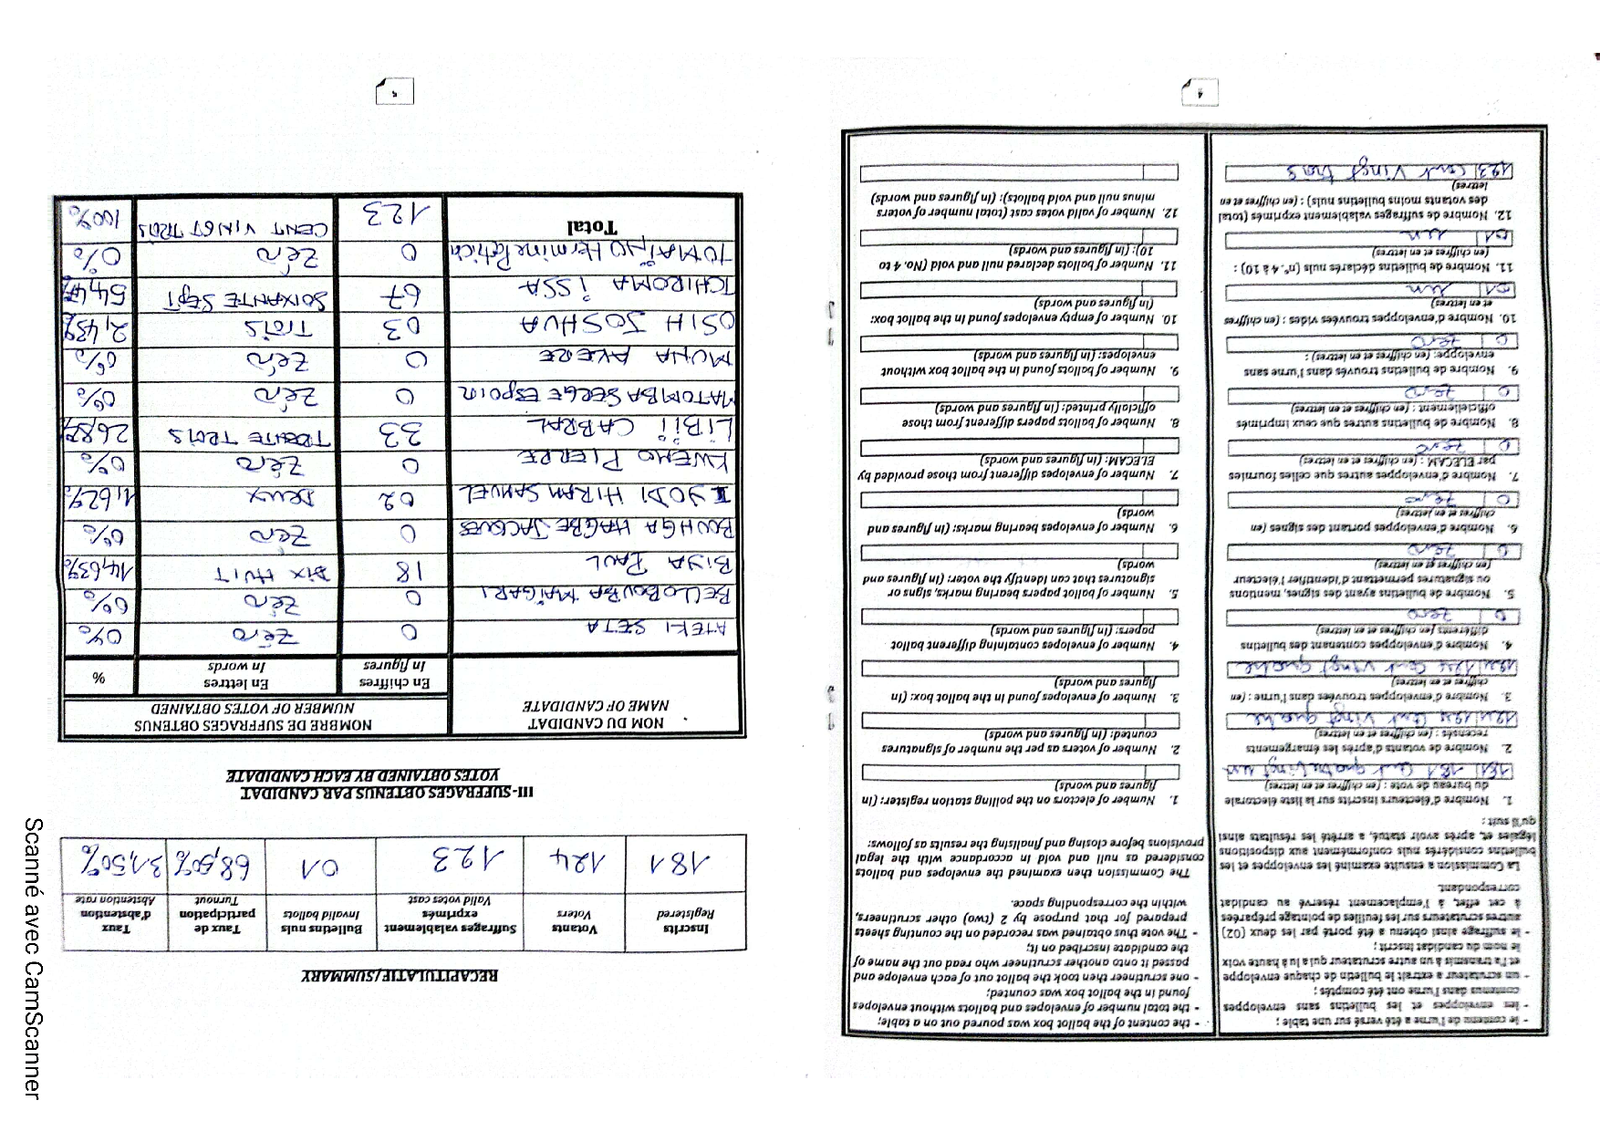 - le contenu de l'urne a été versé sur une table ;
- les enveloppes et les bulletins sans enveloppes
contenus dans l'urne ont été comptés ;
- un scrutateur a extrait le bulletin de chaque enveloppe
et l'a transmis à un autre scrutateur qui a lu à haute voix
le nom du candidat inscrit ;
- le suffrage ainsi obtenu a été porté par les deux (02)
autres scrutateurs sur les feuilles de pointage préparées
à cet effet, à l'emplacement réservé au candidat
correspondant.
La Commission a ensuite examiné les enveloppes et les
bulletins considérés nuls conformément aux dispositions
légales et, après avoir statué, a arrêté les résultats ainsi
qu'il suit :
1. Nombre d'électeurs inscrits sur la liste électorale
du bureau de vote : (en chiffres et en lettres)
181 181 Cent quatre vingt un
2. Nombre de votants d'après les émargements
recensés : (en chiffres et en lettres)
124 124 Cent vingt quatre
3. Nombre d'enveloppes trouvées dans l'urne : (en
chiffres et en lettres)
124 124 Cent vingt quatre
4. Nombre d'enveloppes contenant des bulletins
différents (en chiffres et en lettres)
0 zero
5. Nombre de bulletins ayant des signes, mentions
ou signatures permettant d'identifier l'électeur
(en chiffres et en lettres)
0 zero
6. Nombre d'enveloppes portant des signes (en
chiffres et en lettres)
0 zero
7. Nombre d'enveloppes autres que celles fournies
par ELECAM : (en chiffres et en lettres)
0 zero
8. Nombre de bulletins autres que ceux imprimés
officiellement : (en chiffres et en lettres)
0 zero
9. Nombre de bulletins trouvés dans l'urne sans
enveloppe: (en chiffres et en lettres) :
0 zero
10. Nombre d'enveloppes trouvées vides : (en chiffres
et en lettres)
01 un
11. Nombre de bulletins déclarés nuls (n°. 4 à 10) :
(en chiffres et en lettres)
01 un
12. Nombre de suffrages valablement exprimés (total
des votants moins bulletins nuls) : (en chiffres et en
lettres)
123 Cent Vingt trois
- the content of the ballot box was poured out on a table;
- the total number of envelopes and ballots without envelopes
found in the ballot box was counted;
- one scrutineer then took the ballot out of each envelope and
passed it onto another scrutineer who read out the name of
the candidate inscribed on it;
- The vote thus obtained was recorded on the counting sheets
prepared for that purpose by 2 (two) other scrutineers,
within the corresponding space.
The Commission then examined the envelopes and ballots
considered as null and void in accordance with the legal
provisions before closing and finalising the results as follows:
1. Number of electors on the polling station register: (in
figures and words)
2. Number of voters as per the number of signatures
counted: (in figures and words)
3. Number of envelopes found in the ballot box: (in
figures and words)
4. Number of envelopes containing different ballot
papers: (in figures and words)
5. Number of ballot papers bearing marks, signs or
signatures that can identify the voter: (in figures and
words)
6. Number of envelopes bearing marks: (in figures and
words)
7. Number of envelopes different from those provided by
ELECAM: (in figures and words)
8. Number of ballots papers different from those
officially printed: (in figures and words)
9. Number of ballots found in the ballot box without
envelopes: (in figures and words)
10. Number of empty envelopes found in the ballot box:
(in figures and words)
11. Number of ballots declared null and void (No. 4 to
10): (in figures and words)
12. Number of valid votes cast (total number of voters
minus null and void ballots): (in figures and words)
4
RECAPITULATIF/SUMMARY
Inscrits Registered | Votants Voters | Suffrages valablement exprimés Valid votes cast | Bulletins nuls Invalid ballots | Taux de participation Turnout | Taux d'abstention Abstention rate
181 | 124 | 123 | 01 | 68,50% | 31,50%
III- SUFFRAGES OBTENUS PAR CANDIDAT
VOTES OBTAINED BY EACH CANDIDATE
NOM DU CANDIDAT NAME OF CANDIDATE | NOMBRE DE SUFFRAGES OBTENUS NUMBER OF VOTES OBTAINED
En chiffres In figures | En lettres In words | %
ATEKI SETA | 0 | Zéro | 0%
BELLO BOUBA MAÏGARI | 0 | Zéro | 0%
BIYA PAUL | 18 | DIX HUIT | 14,63%
BOUHGA HAGBE JACQUES | 0 | Zéro | 0%
IYODI HIRAM SAMUEL | 02 | Deux | 1,62%
KWEMO PIERRE | 0 | Zéro | 0%
LIBII CABRAL | 33 | TRENTE TROIS | 26,82%
MATOMBA SERGE ESPOIR | 0 | Zéro | 0%
MUNA AKERE | 0 | Zéro | 0%
OSIH JOSHUA | 03 | Trois | 2,43%
TCHIROMA ISSA | 67 | SOIXANTE SEPT | 54,47%
TOMAÏNO Hermine Patricia | 0 | Zéro | 0%
Total | 123 | CENT VINGT TROIS | 100%
5
Scanné avec CamScanner